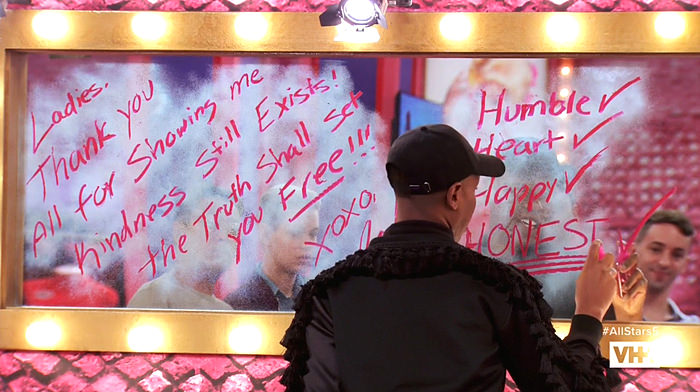 Ladies.
Thank you
All for Showing me
Kindness Still Exists!
the Truth Shall set
you Free!!!
XOXO,
Humble ✓
Heart ✓
Happy ✓
HONEST ✓
#AllStars5
VH1